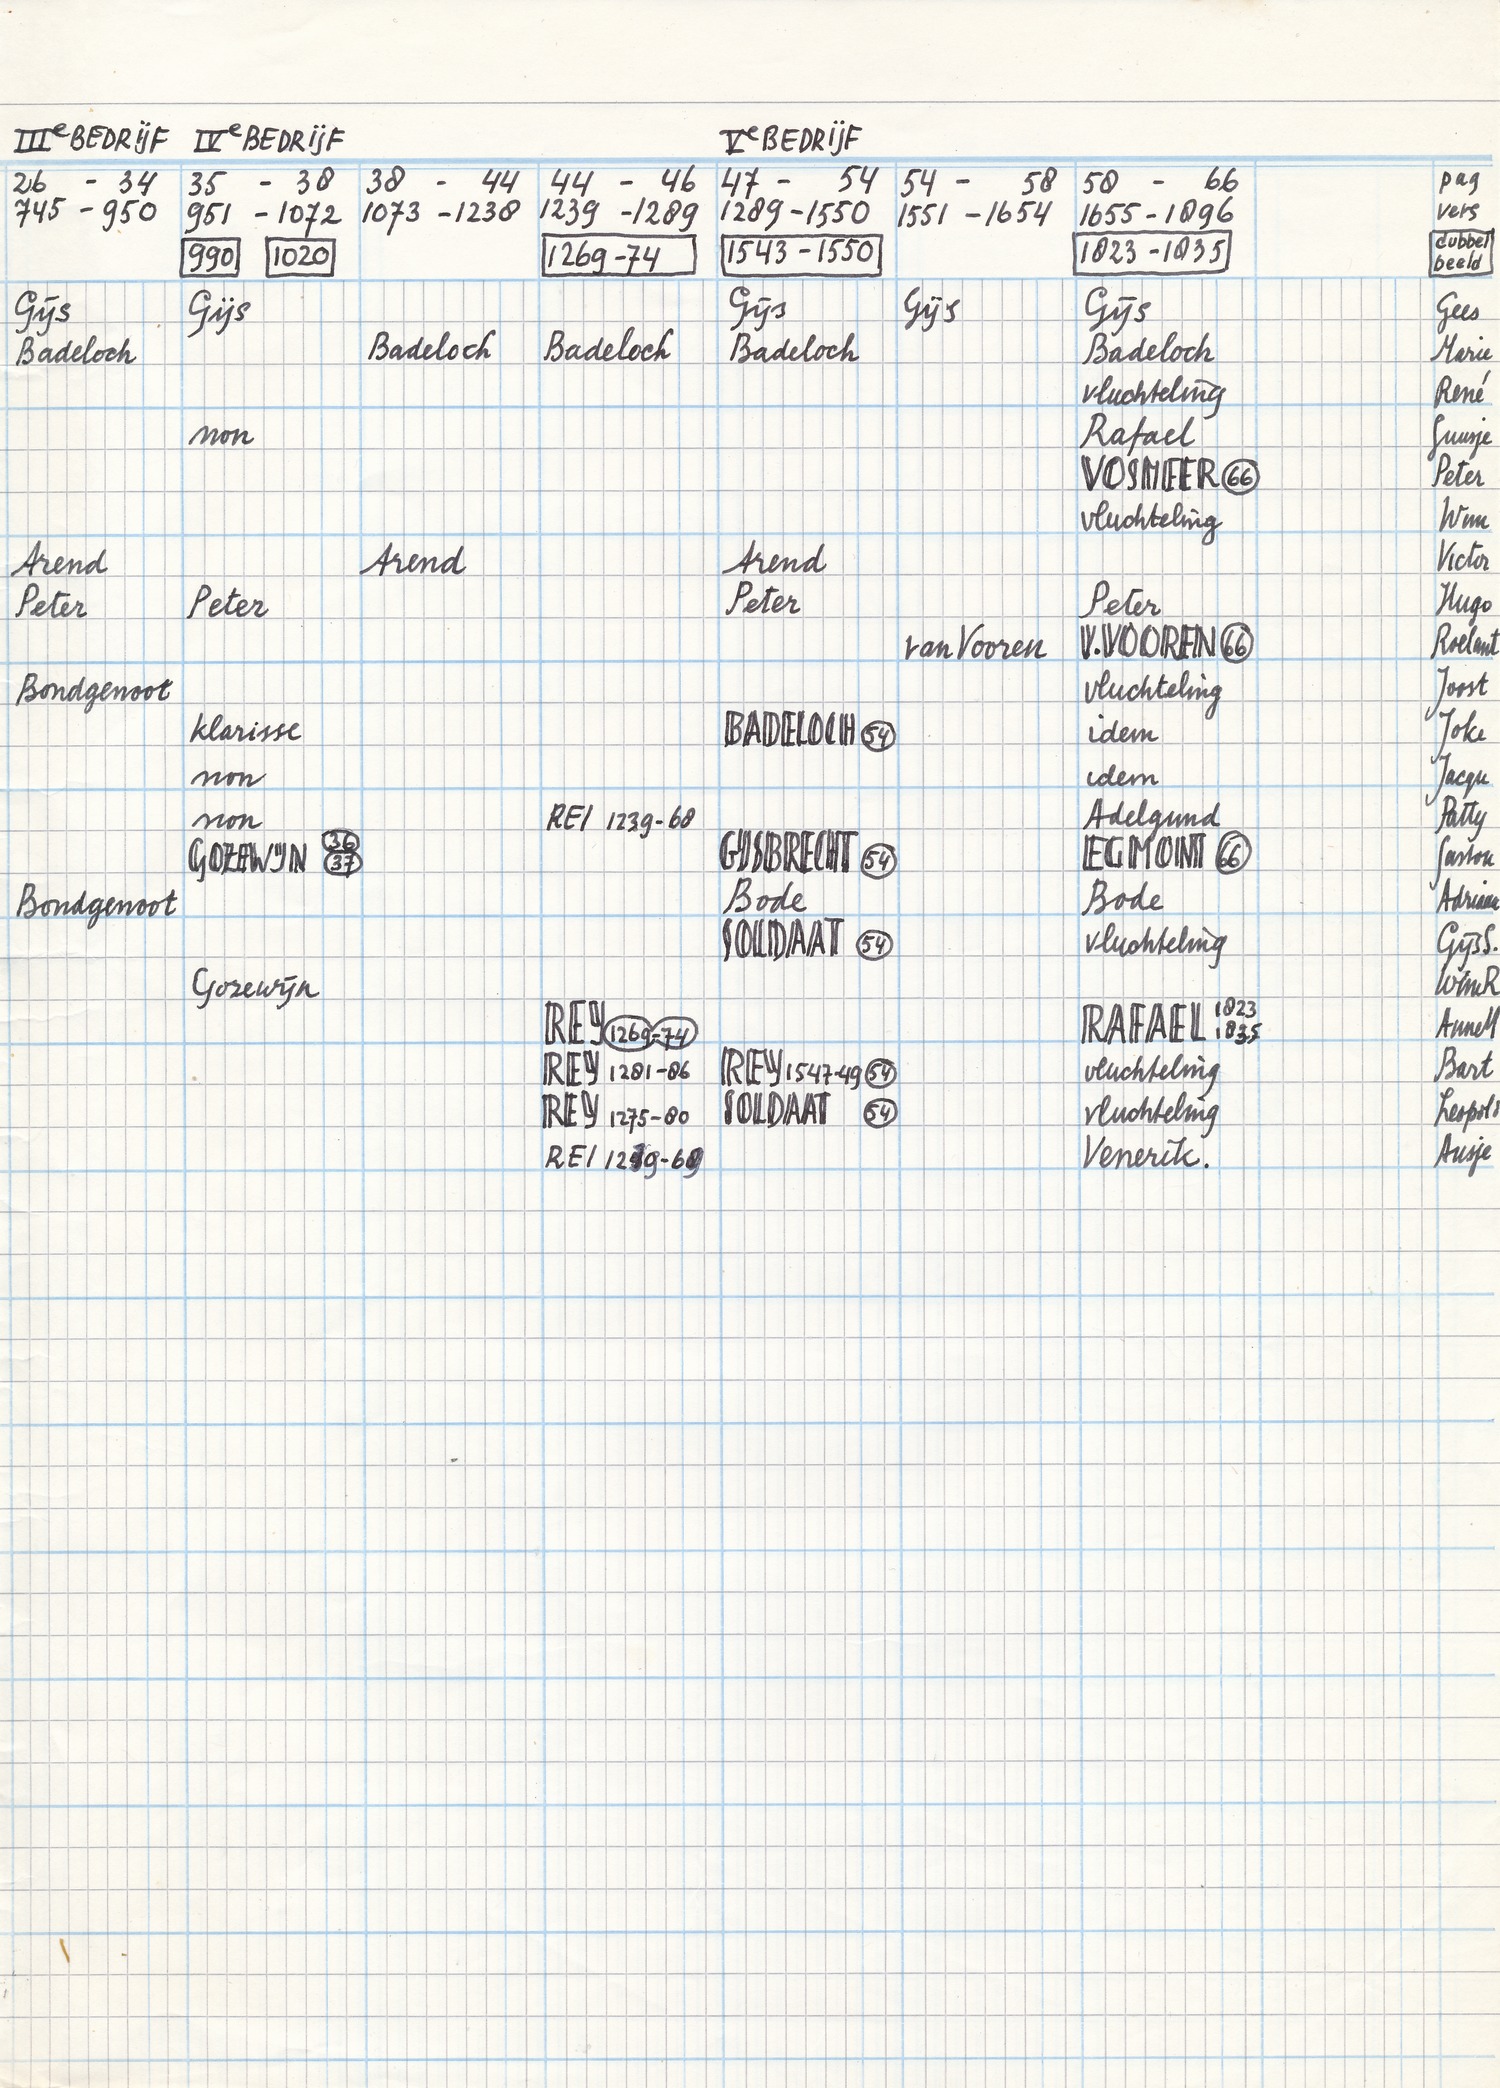 IIIe BEDRIJF IVe BEDRIJF Ve BEDRIJF
26 - 34 35 - 38 38 - 44 44 - 46 47 - 54 54 - 58 58 - 66 pag
745 - 950 951 - 1072 1073 - 1238 1239 - 1289 1289 - 1550 1551 - 1654 1655 - 1896 vers
990 1020 1269-74 1543-1550 1823-1835 dubbel beeld
Gijs Gijs Gijs Gijs Gijs Gees
Badeloch Badeloch Badeloch Badeloch Badeloch Marie
vluchteling René
non Rafael Guusje
VOSMEER 66 Peter
vluchteling Wim
Arend Arend Arend Victor
Peter Peter Peter Peter Hugo
van Vooren V.VOOREN 66 Roelant
Bondgenoot vluchteling Joost
klarisse BADELOCH 54 idem Joke
non idem Jacqu
non REI 1239-68 Adelgund Patty
GOZEWIJN 36 37 GIJSBRECHT 54 EGMONT 66 Gaston
Bondgenoot Bode Bode Adriaan
SOLDAAT 54 vluchteling Gijs S.
Gozewijn Wim R
REY 1269-74 RAFAEL 1823 1835 Anne M
REY 1281-86 REY 1547-49 54 vluchteling Bart
REY 1275-80 SOLDAAT 54 vluchteling Leopold
REI 1239-68 Venerik. Ansje